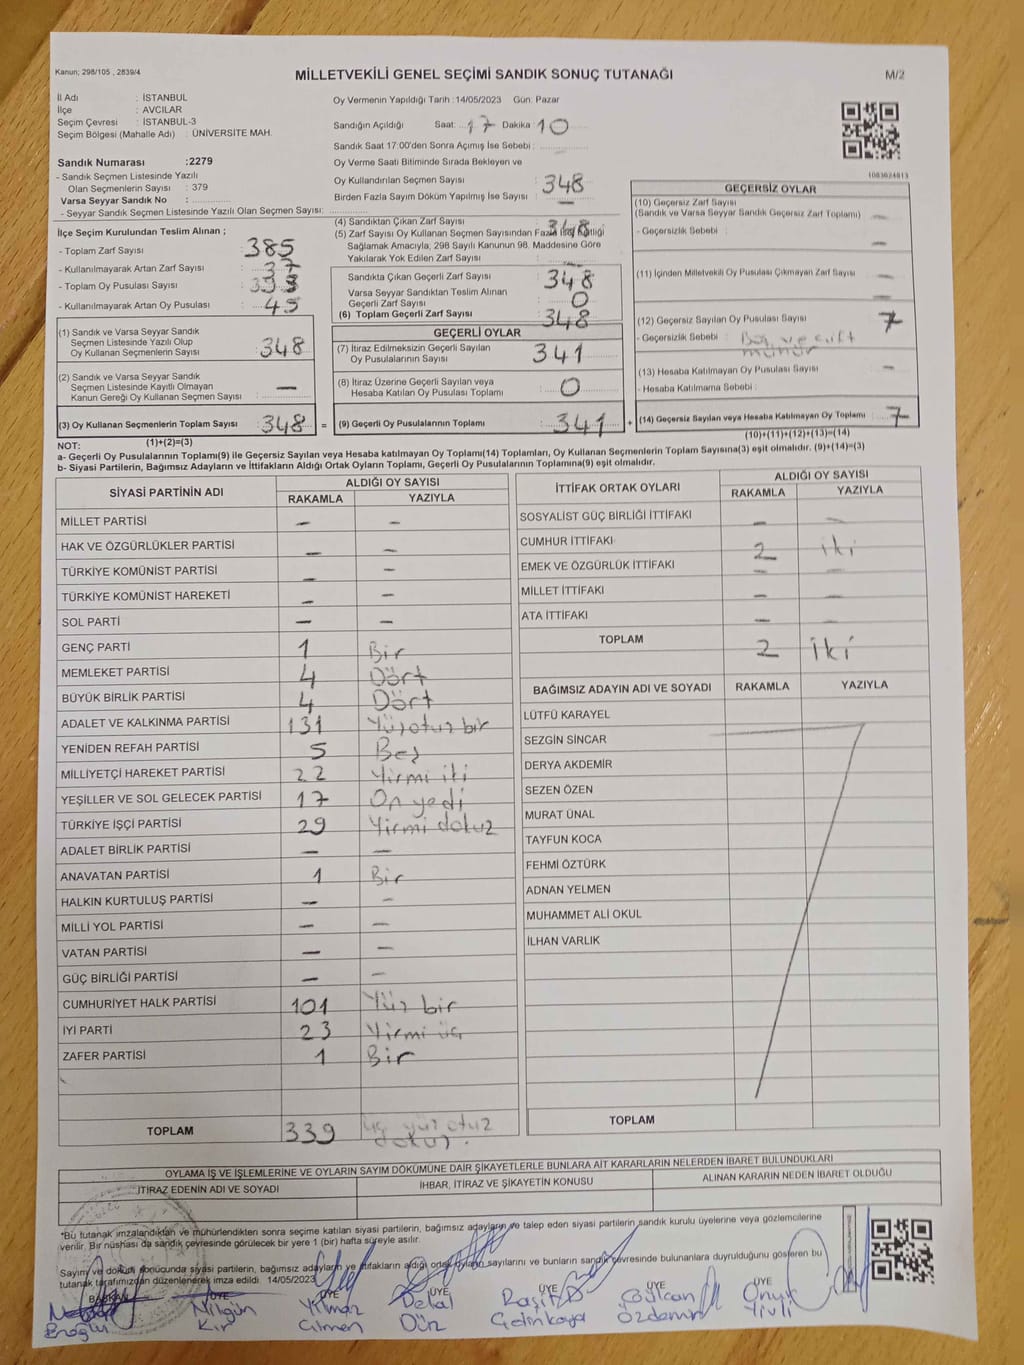 Kanun; 298/105 , 2839/4
MİLLETVEKİLİ GENEL SEÇİMİ SANDIK SONUÇ TUTANAĞI
M/2
İl Adı : İSTANBUL
İlçe : AVCILAR
Seçim Çevresi : İSTANBUL-3
Seçim Bölgesi (Mahalle Adı) : ÜNİVERSİTE MAH.
Sandık Numarası :2279
- Sandık Seçmen Listesinde Yazılı
Olan Seçmenlerin Sayısı : 379
Varsa Seyyar Sandık No :
- Seyyar Sandık Seçmen Listesinde Yazılı Olan Seçmen Sayısı:
Oy Vermenin Yapıldığı Tarih :14/05/2023 Gün: Pazar
Sandığın Açıldığı Saat: 17 Dakika: 10
Sandık Saat 17:00'den Sonra Açımış İse Sebebi : —
Oy Verme Saati Bitiminde Sırada Bekleyen ve
Oy Kullandırılan Seçmen Sayısı : 348
Birden Fazla Sayım Döküm Yapılmış İse Sayısı : —
İlçe Seçim Kurulundan Teslim Alınan ;
- Toplam Zarf Sayısı : 385
- Kullanılmayarak Artan Zarf Sayısı : 37
- Toplam Oy Pusulası Sayısı :
- Kullanılmayarak Artan Oy Pusulası : 45
(1) Sandık ve Varsa Seyyar Sandık
Seçmen Listesinde Yazılı Olup
Oy Kullanan Seçmenlerin Sayısı : 348
(2) Sandık ve Varsa Seyyar Sandık
Seçmen Listesinde Kayıtlı Olmayan
Kanun Gereği Oy Kullanan Seçmen Sayısı : —
(3) Oy Kullanan Seçmenlerin Toplam Sayısı : 348 =
(1)+(2)=(3)
(4) Sandıktan Çıkan Zarf Sayısı : 348
(5) Zarf Sayısı Oy Kullanan Seçmen Sayısından Fazla ise, Eşitliği
Sağlamak Amacıyla; 298 Sayılı Kanunun 98. Maddesine Göre
Yakılarak Yok Edilen Zarf Sayısı : —
Sandıkta Çıkan Geçerli Zarf Sayısı : 348
Varsa Seyyar Sandıktan Teslim Alınan
Geçerli Zarf Sayısı : 0
(6) Toplam Geçerli Zarf Sayısı : 348
GEÇERLİ OYLAR
(7) İtiraz Edilmeksizin Geçerli Sayılan
Oy Pusulalarının Sayısı : 341
(8) İtiraz Üzerine Geçerli Sayılan veya
Hesaba Katılan Oy Pusulası Toplamı : 0
(9) Geçerli Oy Pusulalarının Toplamı : 341 +
1083624813
GEÇERSİZ OYLAR
(10) Geçersiz Zarf Sayısı
(Sandık ve Varsa Seyyar Sandık Geçersiz Zarf Toplamı) : —
- Geçersizlik Sebebi : —
(11) İçinden Milletvekili Oy Pusulası Çıkmayan Zarf Sayısı : —
(12) Geçersiz Sayılan Oy Pusulası Sayısı : 7
- Geçersizlik Sebebi : Boş ve çift
mühür
(13) Hesaba Katılmayan Oy Pusulası Sayısı : —
- Hesaba Katılmama Sebebi :
(14) Geçersiz Sayılan veya Hesaba Katılmayan Oy Toplamı : 7
(10)+(11)+(12)+(13)=(14)
NOT:
a- Geçerli Oy Pusulalarının Toplamı(9) ile Geçersiz Sayılan veya Hesaba katılmayan Oy Toplamı(14) Toplamları, Oy Kullanan Seçmenlerin Toplam Sayısına(3) eşit olmalıdır. (9)+(14)=(3)
b- Siyasi Partilerin, Bağımsız Adayların ve İttifakların Aldığı Ortak Oyların Toplamı, Geçerli Oy Pusulalarının Toplamına(9) eşit olmalıdır.
SİYASİ PARTİNİN ADI
ALDIĞI OY SAYISI
RAKAMLA YAZIYLA
MİLLET PARTİSİ — —
HAK VE ÖZGÜRLÜKLER PARTİSİ — —
TÜRKİYE KOMÜNİST PARTİSİ — —
TÜRKİYE KOMÜNİST HAREKETİ — —
SOL PARTİ — —
GENÇ PARTİ 1 Bir
MEMLEKET PARTİSİ 4 Dört
BÜYÜK BİRLİK PARTİSİ 4 Dört
ADALET VE KALKINMA PARTİSİ 131 Yüzotuz bir
YENİDEN REFAH PARTİSİ 5 Beş
MİLLİYETÇİ HAREKET PARTİSİ 22 Yirmi iki
YEŞİLLER VE SOL GELECEK PARTİSİ 17 On yedi
TÜRKİYE İŞÇİ PARTİSİ 29 Yirmi dokuz
ADALET BİRLİK PARTİSİ — —
ANAVATAN PARTİSİ 1 Bir
HALKIN KURTULUŞ PARTİSİ — —
MİLLİ YOL PARTİSİ — —
VATAN PARTİSİ — —
GÜÇ BİRLİĞİ PARTİSİ — —
CUMHURİYET HALK PARTİSİ 101 Yüz bir
İYİ PARTİ 23 Yirmi üç
ZAFER PARTİSİ 1 Bir
TOPLAM 339 üç yüz otuz
dokuz.
İTTİFAK ORTAK OYLARI
ALDIĞI OY SAYISI
RAKAMLA YAZIYLA
SOSYALİST GÜÇ BİRLİĞİ İTTİFAKI — —
CUMHUR İTTİFAKI 2 iki
EMEK VE ÖZGÜRLÜK İTTİFAKI — —
MİLLET İTTİFAKI — —
ATA İTTİFAKI — —
TOPLAM 2 iki
BAĞIMSIZ ADAYIN ADI VE SOYADI RAKAMLA YAZIYLA
LÜTFÜ KARAYEL
SEZGİN SİNCAR
DERYA AKDEMİR
SEZEN ÖZEN
MURAT ÜNAL
TAYFUN KOCA
FEHMİ ÖZTÜRK
ADNAN YELMEN
MUHAMMET ALİ OKUL
İLHAN VARLIK
TOPLAM
OYLAMA İŞ VE İŞLEMLERİNE VE OYLARIN SAYIM DÖKÜMÜNE DAİR ŞİKAYETLERLE BUNLARA AİT KARARLARIN NELERDEN İBARET BULUNDUKLARI
İTİRAZ EDENİN ADI VE SOYADI İHBAR, İTİRAZ VE ŞİKAYETİN KONUSU ALINAN KARARIN NEDEN İBARET OLDUĞU
*Bu tutanak imzalandıktan ve mühürlendikten sonra seçime katılan siyasi partilerin, bağımsız adayların ve talep eden siyasi partilerin sandık kurulu üyelerine veya gözlemcilerine
verilir. Bir nüshası da sandık çevresinde görülecek bir yere 1 (bir) hafta süreyle asılır.
Sayım ve döküm sonucunda siyasi partilerin, bağımsız adayların ve ittifakların aldığı ortak oyların sayılarını ve bunların sandık çevresinde bulunanlara duyrulduğunu gösteren bu
tutanak tarafımızdan düzenlenerek imza edildi. 14/05/2023
BAŞKAN ÜYE ÜYE ÜYE ÜYE ÜYE ÜYE
Nilgün Yılmaz Delal Raşit Gülcan Onur
Eroğlu Kır Çilmen Dün Gelinkaya Özdemir Yivli